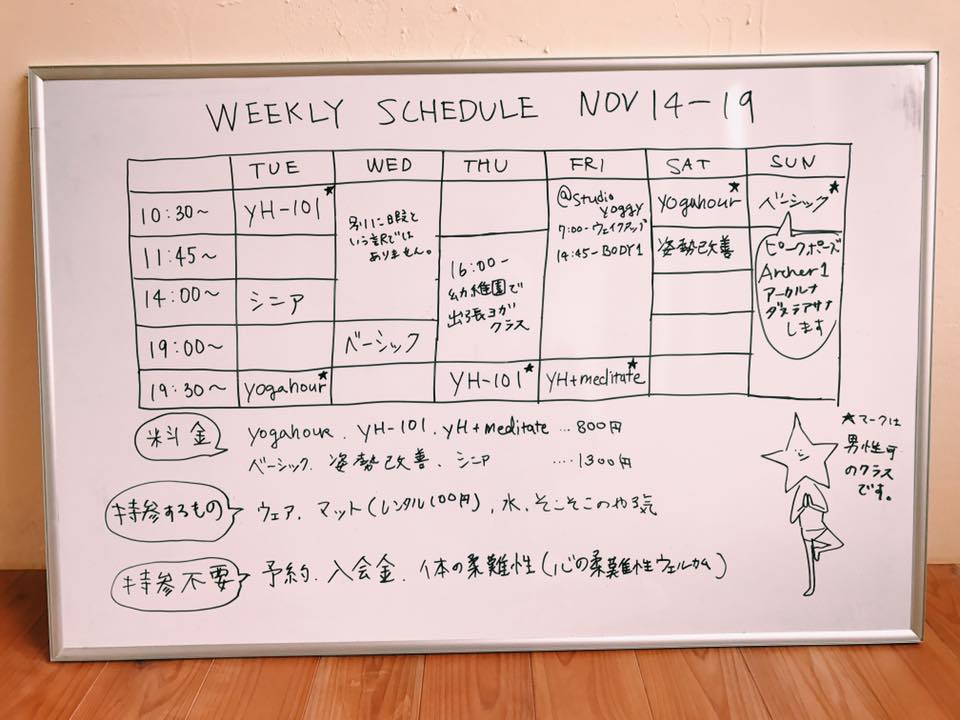 WEEKLY SCHEDULE NOV 14-19
TUE WED THU FRI SAT SUN
10:30~ YH-101★ yogahour★ ベーシック★
別に暇と
いう訳では
ありません。
@studio
yoggy
7:00-ウェイクアップ
14:45-BODY1
11:45~ 姿勢改善
16:00-
幼稚園で
出張ヨガ
クラス
ピークポーズ
Archer1
アーカルナ
ダヌラアサナ
します
14:00~ シニア
19:00~ ベーシック
19:30~ yogahour★ YH-101★ YH+meditate★
料金 yogahour、YH-101、YH+meditate …800円
ベーシック、姿勢改善、シニア ....1300円
持参するもの ウェア、マット(レンタル100円)、水、そこそこのやる気
持参不要 予約、入会金、体の柔難性(心の柔難性ウェルカム)
★マークは
男性可
のクラス
です。